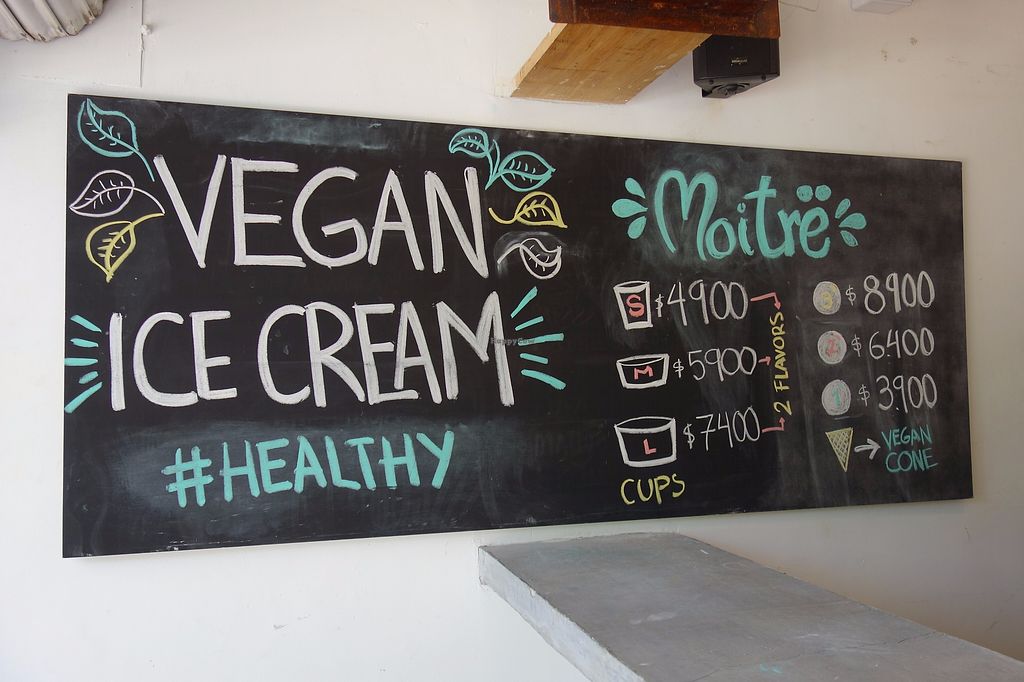 VEGAN
ICE CREAM
#HEALTHY
Moitre
S $4900
M $5900
L $7400
2 FLAVORS
CUPS
3 $8900
2 $6.400
1 $3.900
VEGAN
CONE
HappyCow